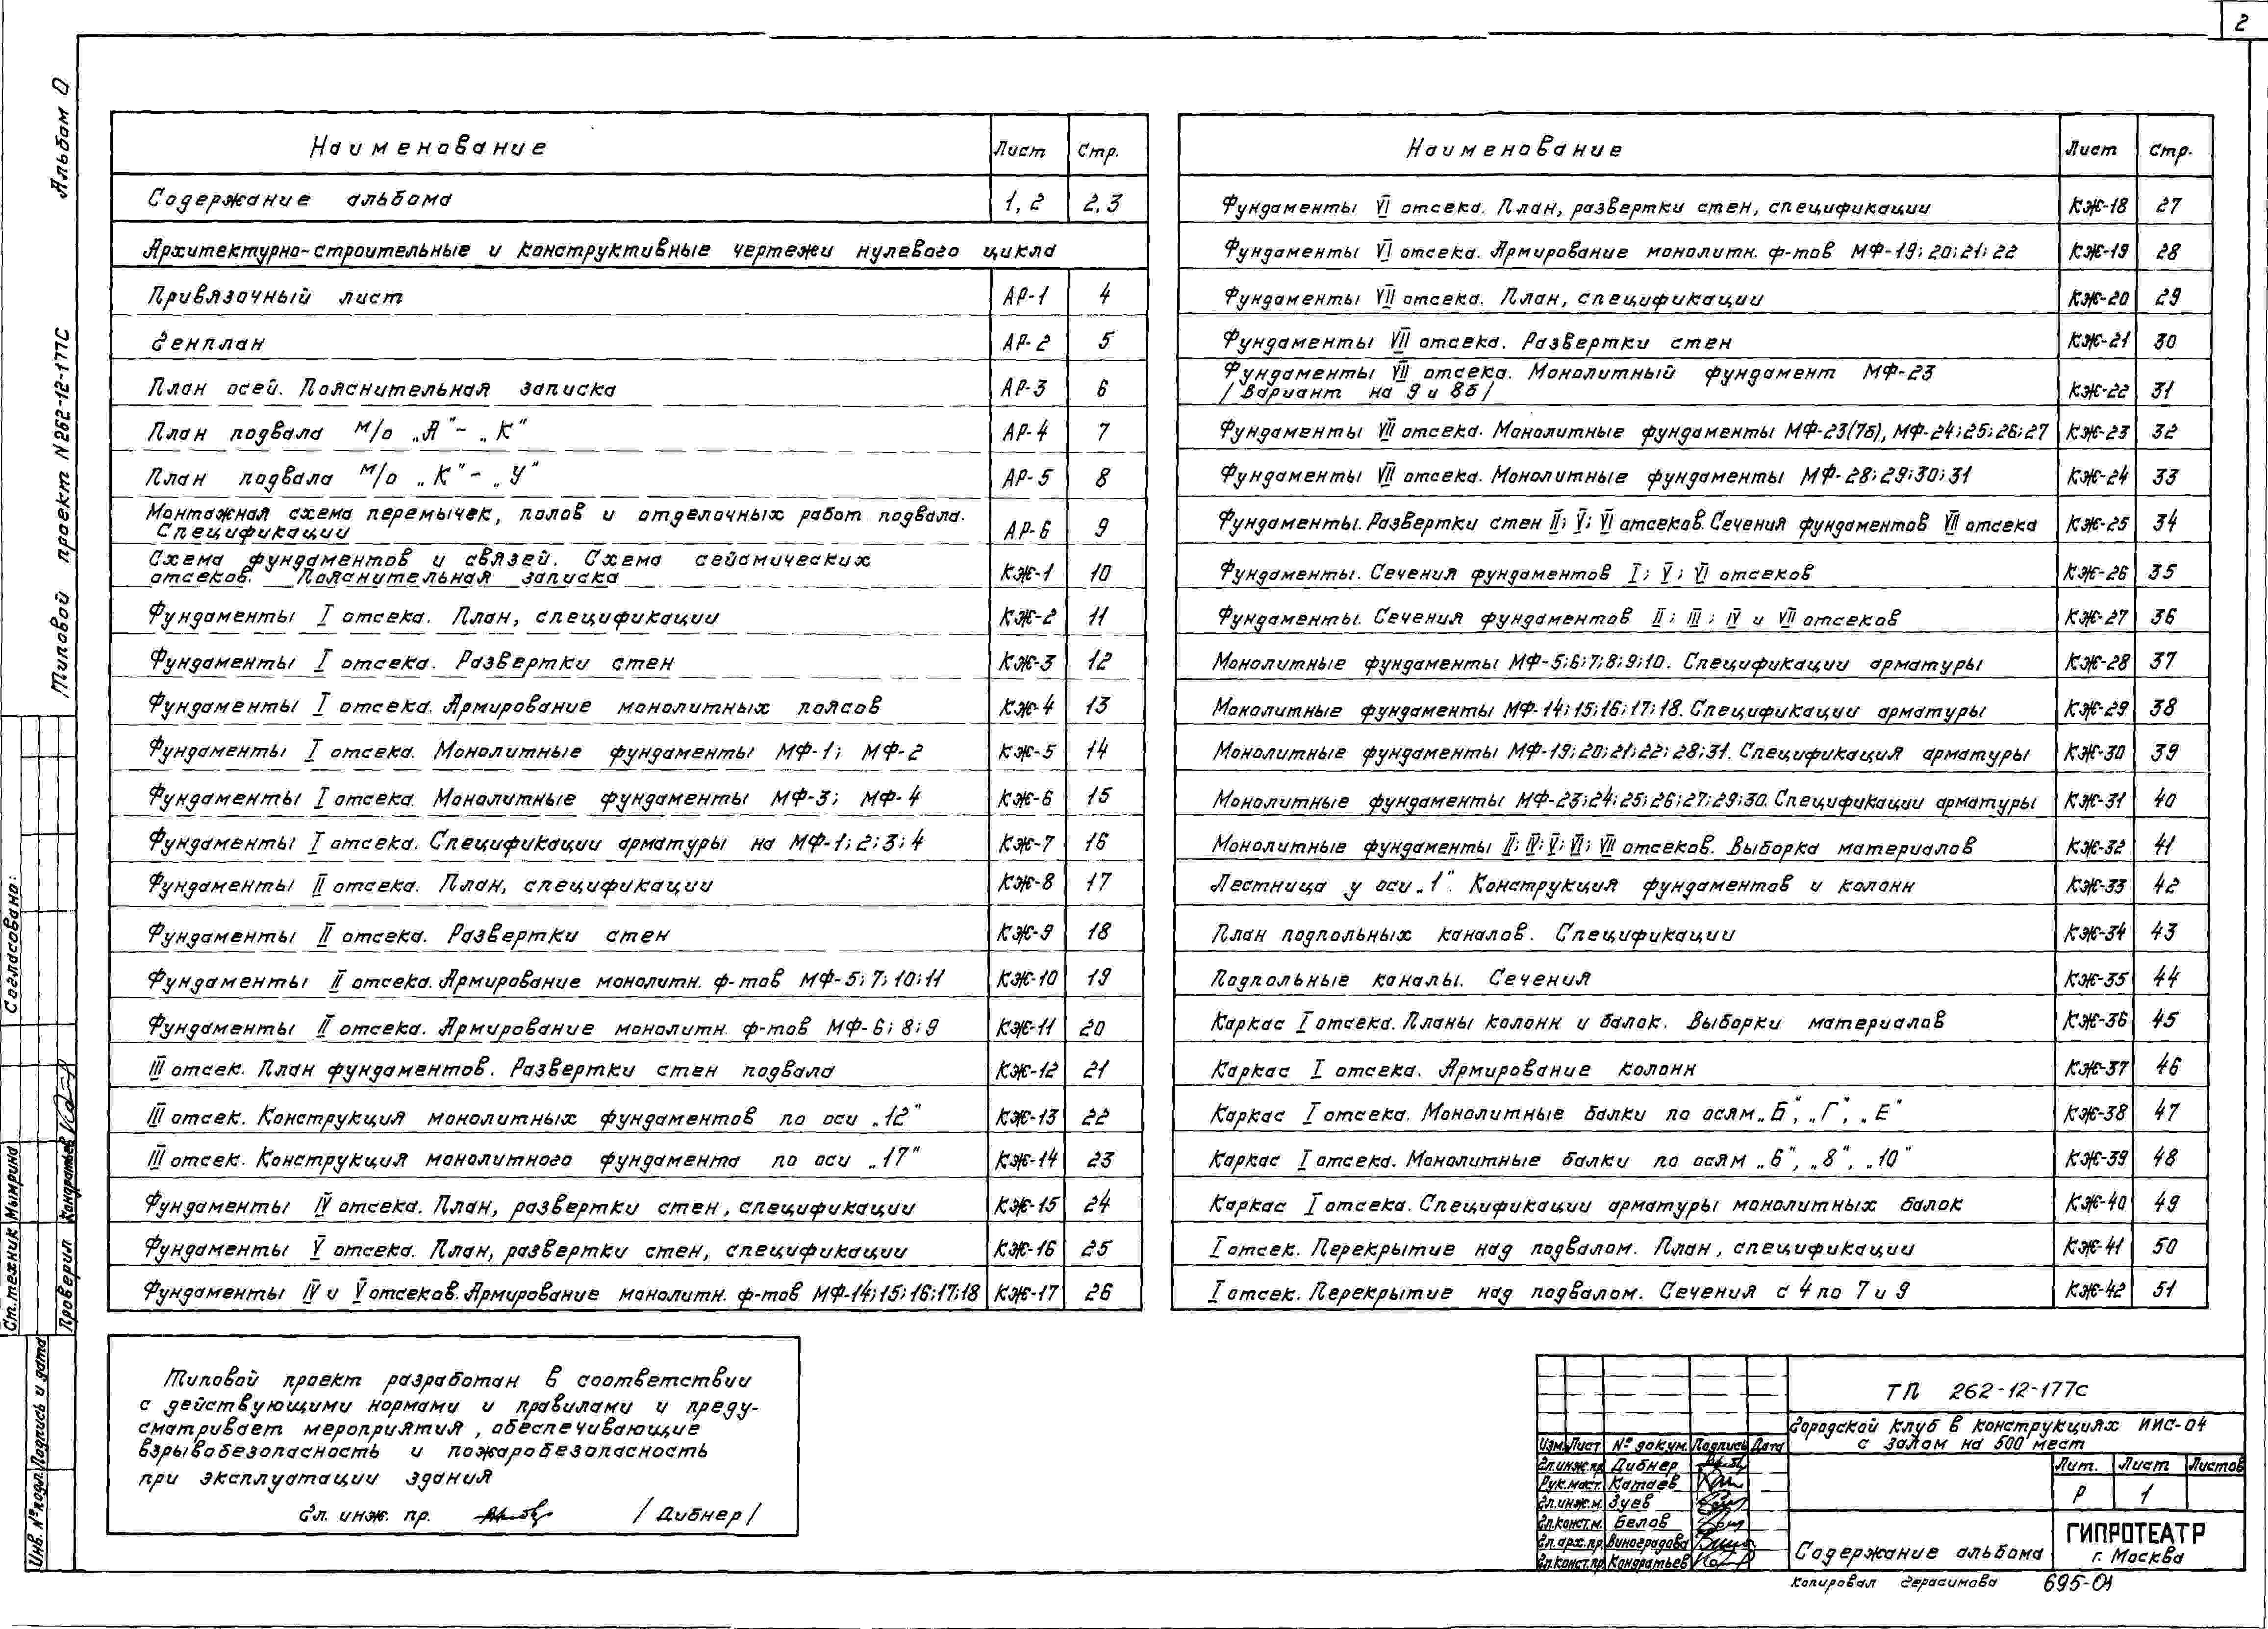 2
Альбом 0
Типовой проект N262-12-177С
Согласовано:
Ст.техник Мымрина
Проверил Кондратьев
Инв.№подл. Подпись и дата
Наименование Лист Стр.
Содержание альбома 1,2 2,3
Архитектурно-строительные и конструктивные чертежи нулевого цикла
Привязочный лист АР-1 4
Генплан АР-2 5
План осей. Пояснительная записка АР-3 6
План подвала м/о „А"-„К" АР-4 7
План подвала м/о „К"-„У" АР-5 8
Монтажная схема перемычек, полов и отделочных работ подвала.
Спецификации АР-6 9
Схема фундаментов и связей. Схема сейсмических
отсеков. Пояснительная записка КЖ-1 10
Фундаменты I отсека. План, спецификации КЖ-2 11
Фундаменты I отсека. Развертки стен КЖ-3 12
Фундаменты I отсека. Армирование монолитных поясов КЖ-4 13
Фундаменты I отсека. Монолитные фундаменты МФ-1; МФ-2 КЖ-5 14
Фундаменты I отсека. Монолитные фундаменты МФ-3; МФ-4 КЖ-6 15
Фундаменты I отсека. Спецификации арматуры на МФ-1;2;3;4 КЖ-7 16
Фундаменты II отсека. План, спецификации КЖ-8 17
Фундаменты II отсека. Развертки стен КЖ-9 18
Фундаменты II отсека. Армирование монолитн. ф-тов МФ-5;7;10;11 КЖ-10 19
Фундаменты II отсека. Армирование монолитн. ф-тов МФ-6;8;9 КЖ-11 20
III отсек. План фундаментов. Развертки стен подвала КЖ-12 21
III отсек. Конструкция монолитных фундаментов по оси „12" КЖ-13 22
III отсек. Конструкция монолитного фундамента по оси „17" КЖ-14 23
Фундаменты IV отсека. План, развертки стен, спецификации КЖ-15 24
Фундаменты V отсека. План, развертки стен, спецификации КЖ-16 25
Фундаменты IV и V отсеков. Армирование монолитн. ф-тов МФ-14;15;16;17;18 КЖ-17 26
Наименование Лист Стр.
Фундаменты VI отсека. План, развертки стен, спецификации КЖ-18 27
Фундаменты VI отсека. Армирование монолитн. ф-тов МФ-19;20;21;22 КЖ-19 28
Фундаменты VII отсека. План, спецификации КЖ-20 29
Фундаменты VII отсека. Развертки стен КЖ-21 30
Фундаменты VII отсека. Монолитный фундамент МФ-23
/Вариант на 9 и 8б/ КЖ-22 31
Фундаменты VII отсека. Монолитные фундаменты МФ-23(7б), МФ-24;25;26;27 КЖ-23 32
Фундаменты VII отсека. Монолитные фундаменты МФ-28;29;30;31 КЖ-24 33
Фундаменты. Развертки стен II; V; VI отсеков. Сечения фундаментов VII отсека КЖ-25 34
Фундаменты. Сечения фундаментов I; V; VI отсеков КЖ-26 35
Фундаменты. Сечения фундаментов II; III; IV и VII отсеков КЖ-27 36
Монолитные фундаменты МФ-5;6;7;8;9;10. Спецификации арматуры КЖ-28 37
Монолитные фундаменты МФ-14;15;16;17;18. Спецификации арматуры КЖ-29 38
Монолитные фундаменты МФ-19;20;21;22;28;31. Спецификация арматуры КЖ-30 39
Монолитные фундаменты МФ-23;24;25;26;27;29;30. Спецификации арматуры КЖ-31 40
Монолитные фундаменты II; IV; V; VI; VII отсеков. Выборка материалов КЖ-32 41
Лестница у оси „1". Конструкция фундаментов и колонн КЖ-33 42
План подпольных каналов. Спецификации КЖ-34 43
Подпольные каналы. Сечения КЖ-35 44
Каркас I отсека. Планы колонн и балок. Выборки материалов КЖ-36 45
Каркас I отсека. Армирование колонн КЖ-37 46
Каркас I отсека. Монолитные балки по осям „Б", „Г", „Е" КЖ-38 47
Каркас I отсека. Монолитные балки по осям „6", „8", „10" КЖ-39 48
Каркас I отсека. Спецификации арматуры монолитных балок КЖ-40 49
I отсек. Перекрытие над подвалом. План, спецификации КЖ-41 50
I отсек. Перекрытие над подвалом. Сечения с 4 по 7 и 9 КЖ-42 51
Типовой проект разработан в соответствии
с действующими нормами и правилами и преду-
сматривает мероприятия, обеспечивающие
взрывобезопасность и пожаробезопасность
при эксплуатации здания
Гл. инж. пр. /Дибнер/
ТП 262-12-177С
Городской клуб в конструкциях ИИС-04
с залом на 500 мест
Изм. Лист № докум. Подпись Дата
Гл.инж.пр. Дибнер
Рук.маст. Катаев
Гл.инж.м. Зуев
Гл.конст.м. Белов
Гл.арх.пр. Виноградова
Гл.конст.пр. Кондратьев
Лит. Лист Листов
Р 1
Содержание альбома
ГИПРОТЕАТР
г. Москва
Копировал Герасимова 695-01